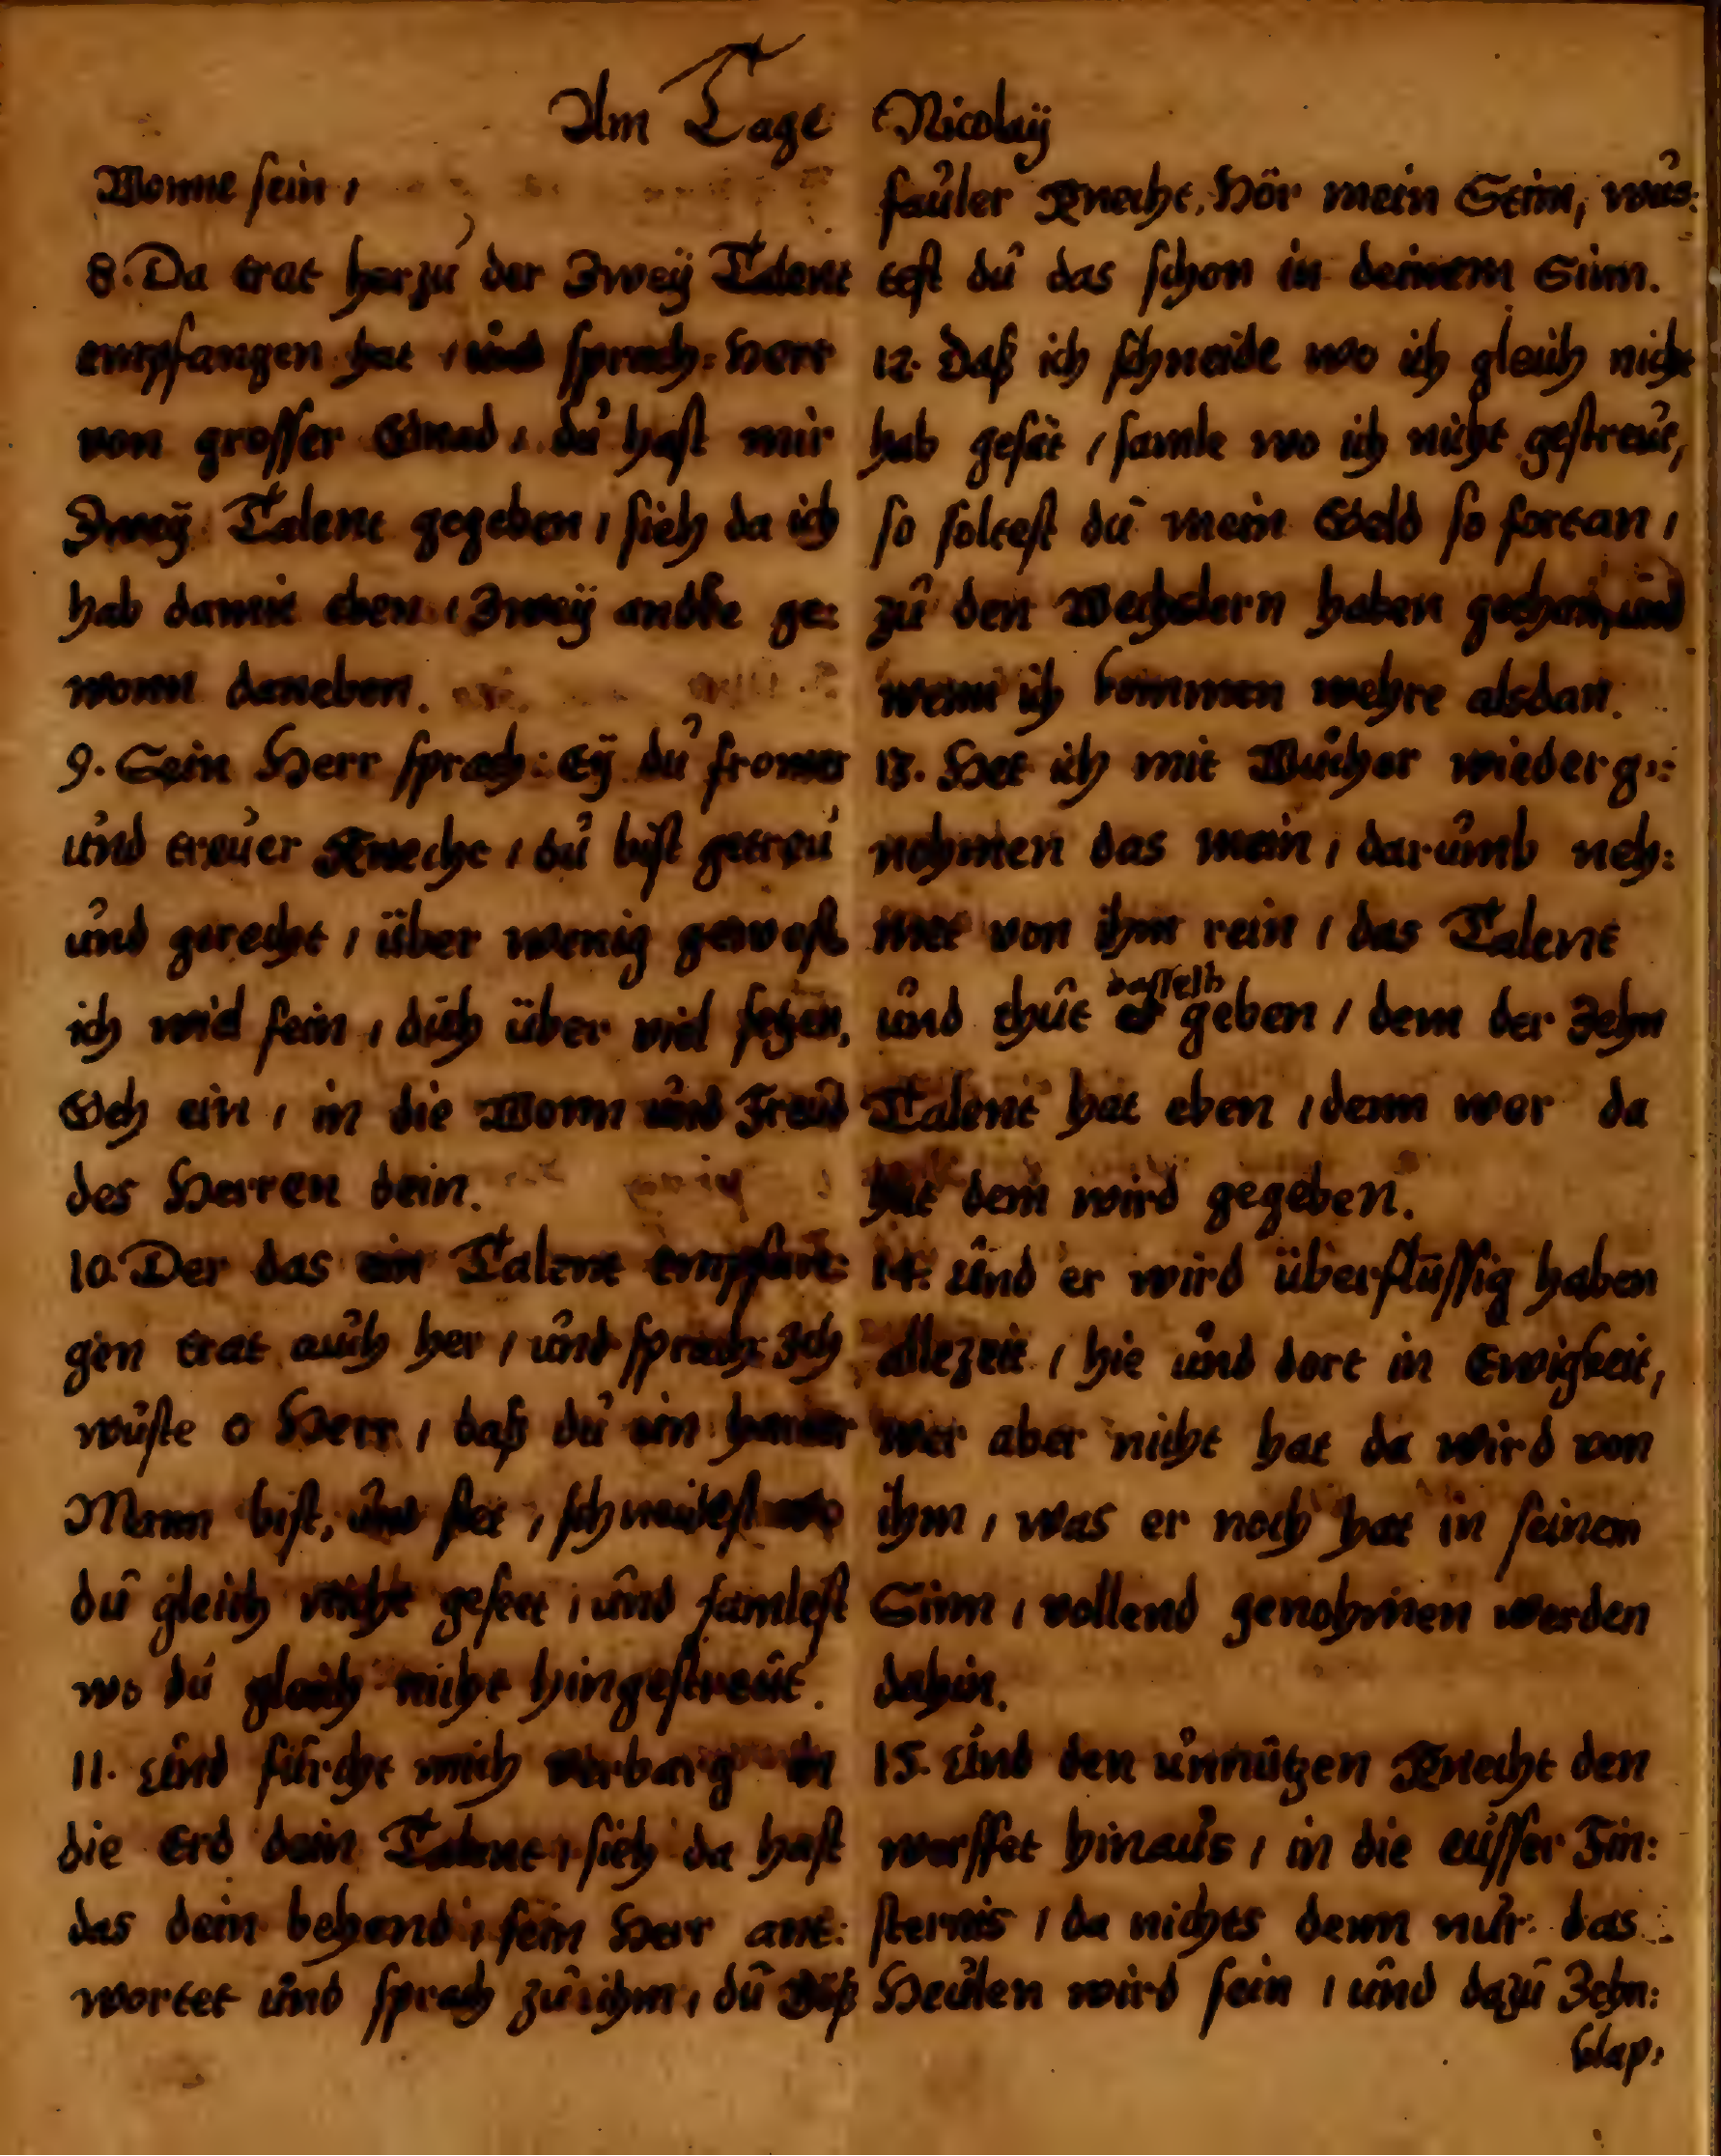 Am Tage Nicolaÿ
Wonne sein /
8. Da trat herzu der Zweÿ Talent
empfangen hat / und sprach: Herr
von grosser Gnad / du hast mir
Zweÿ Talent gegeben / sieh da ich
hab damit eben / Zweÿ andre ge:
wonn daneben.
9. Sein Herr sprach: Eÿ du fromer
und treuer Knecht / du bist getreu
und gerecht / über wenig gewest
ich wil fein / dich über viel setzen,
Geh ein / in die Wonn und Freud
des Herren dein.
10. Der das ein Talent empfan:
gen trat auch her / und sprach: Ich
wuste o Herr / daß du ein harter
Mann bist, und stet / schneidest wo
du gleich nicht geseet / und samlest
wo du gleich nicht hingestreut.
11. Und fürcht mich verbarg in
die Erd dein Talent / sieh da hast
das dein behend / sein Herr ant:
wortet und sprach zu ihm / du Böß
fauler Knecht, Hör mein Stim, wus:
test du das schon in deinem Sinn.
12. Daß ich schneide wo ich gleich nicht
hab gesät / samle wo ich nicht gestreut,
so soltest du mein Geld so fortan /
zu den Wechslern haben gethan, und
wenn ich kommen wehre alsdan.
13. Het ich mit Wucher wiederge:
nohmen das mein / darumb neh:
met von ihm rein / das Talent
und thut dasselb geben / dem der Zehn
Talent hat eben / denn wer da
hat dem wird gegeben.
14. Und er wird überflüssig haben
allezeit / hie und dort in Ewigkeit,
wer aber nicht hat da wird von
ihm / was er noch hat in seinem
Sinn / vollend genohmen werden
dahin.
15. Und den unnützen Knecht den
werffet hinaus / in die eüsser Fin:
sternis / da nichts denn nur das
Heulen wird sein / und dazu Zehn:
klap: